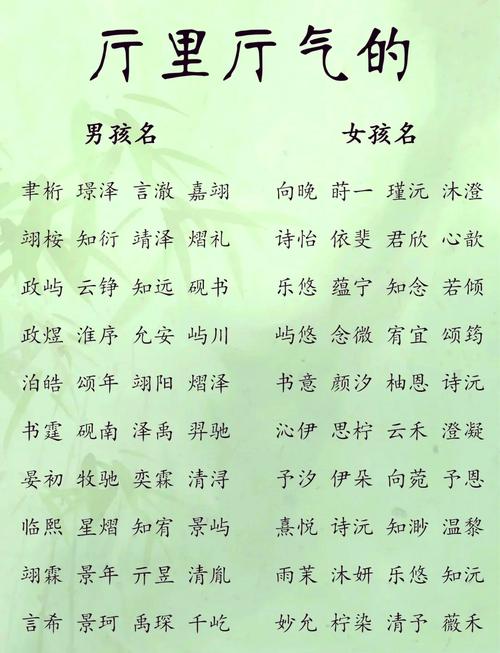 厅里厅气的
男孩名 女孩名
聿桁 璟泽 言澈 嘉翊 向晚 莳一 瑾沅 沐澄
翊桉 知衍 靖泽 熠礼 诗怡 依斐 君欣 心歆
政屿 云铮 知远 砚书 乐悠 蕴宁 知念 若倾
政煜 淮序 允安 屿川 屿悠 念微 宥宜 颂筠
泊皓 颂年 翊阳 熠泽 书意 颜汐 柚恩 诗沅
书霆 砚南 泽禹 羿驰 沁伊 思柠 云禾 澄凝
晏初 牧驰 奕霖 清浔 予汐 伊朵 向菀 予恩
临熙 星熠 知宥 景屿 熹悦 诗沅 知渺 温黎
翊霖 景年 亓昱 清胤 雨茉 沐妍 乐悠 知沅
言希 景珂 禹琛 千屹 妙允 柠染 清予 薇禾